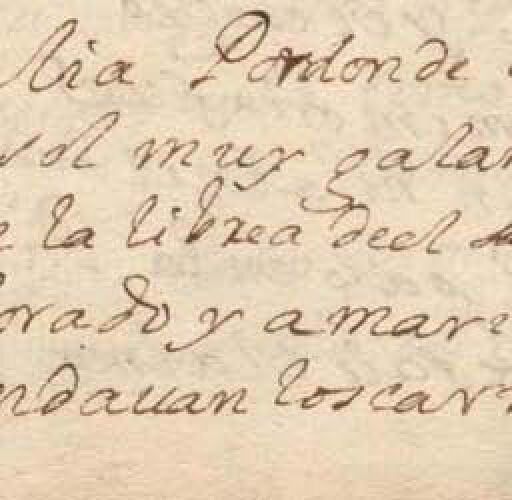 lia Pordonde
sol muy galan
e la librea deel
orado y amari
ndauan loscar